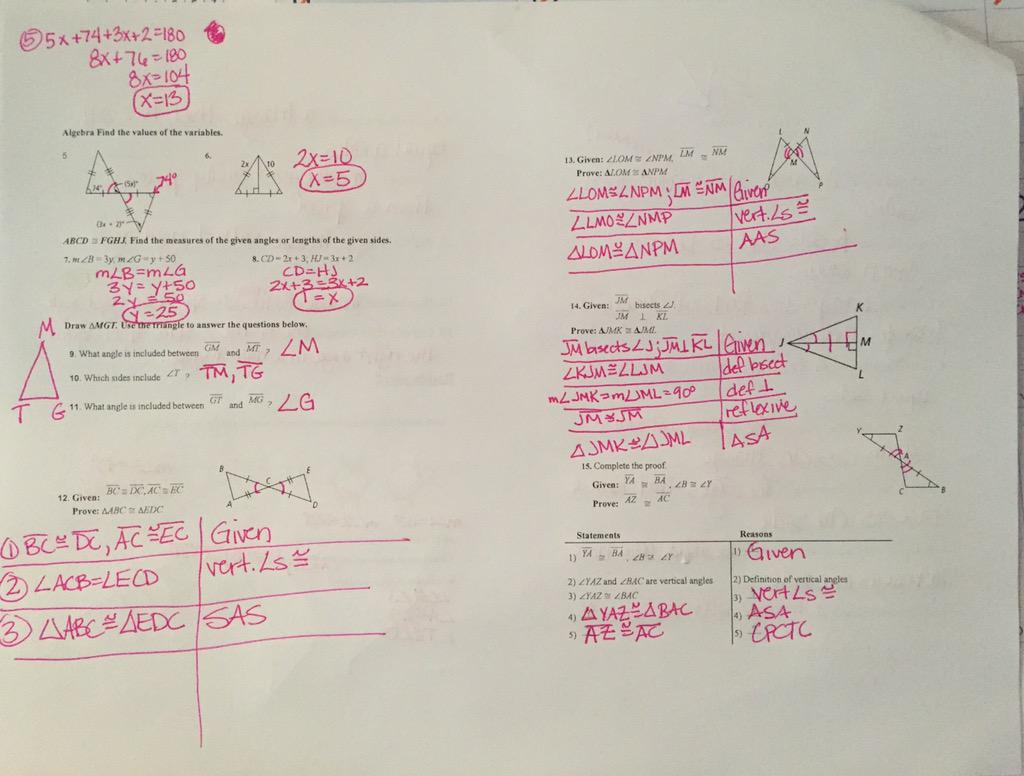 ⑤ 5x+74+3x+2=180
8x+76=180
8x=104
x=13
Algebra Find the values of the variables.
5
74°
(5x)°
74°
(3x + 2)°
6.
2x
10
2x=10
x=5
ABCD ≅ FGHJ. Find the measures of the given angles or lengths of the given sides.
7. m∠B = 3y, m∠G = y + 50
m∠B=m∠G
3y=y+50
2y=50
y=25
8. CD = 2x + 3; HJ = 3x + 2
CD=HJ
2x+3=3x+2
1=x
Draw ΔMGT. Use the triangle to answer the questions below.
M
T G
9. What angle is included between GM and MT ? ∠M
10. Which sides include ∠T ? TM, TG
11. What angle is included between GT and MG ? ∠G
12. Given: BC ≅ DC, AC ≅ EC
Prove: ΔABC ≅ ΔEDC
B
E
C
A
D
① BC≅DC, AC≅EC Given
② ∠ACB=∠ECD vert. ∠s ≅
③ △ABC≅△EDC SAS
13. Given: ∠LOM ≅ ∠NPM, LM ≅ NM
Prove: ΔLOM ≅ ΔNPM
L N
M
P
∠LOM≅∠NPM; LM≅NM Given
∠LMO≅∠NMP vert. ∠s ≅
△LOM≅△NPM AAS
14. Given: JM bisects ∠J.
JM ⊥ KL
Prove: ΔJMK ≅ ΔJML
K
J
M
L
JM bisects ∠J; JM⊥KL Given
∠KJM≅∠LJM def bisect
m∠JMK=m∠JML=90° def ⊥
JM≅JM reflexive
△JMK≅△JML ASA
15. Complete the proof.
Given: YA ≅ BA, ∠B ≅ ∠Y
Prove: AZ ≅ AC
Y
Z
A
C
B
Statements Reasons
1) YA ≅ BA, ∠B ≅ ∠Y 1) Given
2) ∠YAZ and ∠BAC are vertical angles 2) Definition of vertical angles
3) ∠YAZ ≅ ∠BAC 3) vert ∠s ≅
4) △YAZ≅△BAC 4) ASA
5) AZ≅AC 5) CPCTC